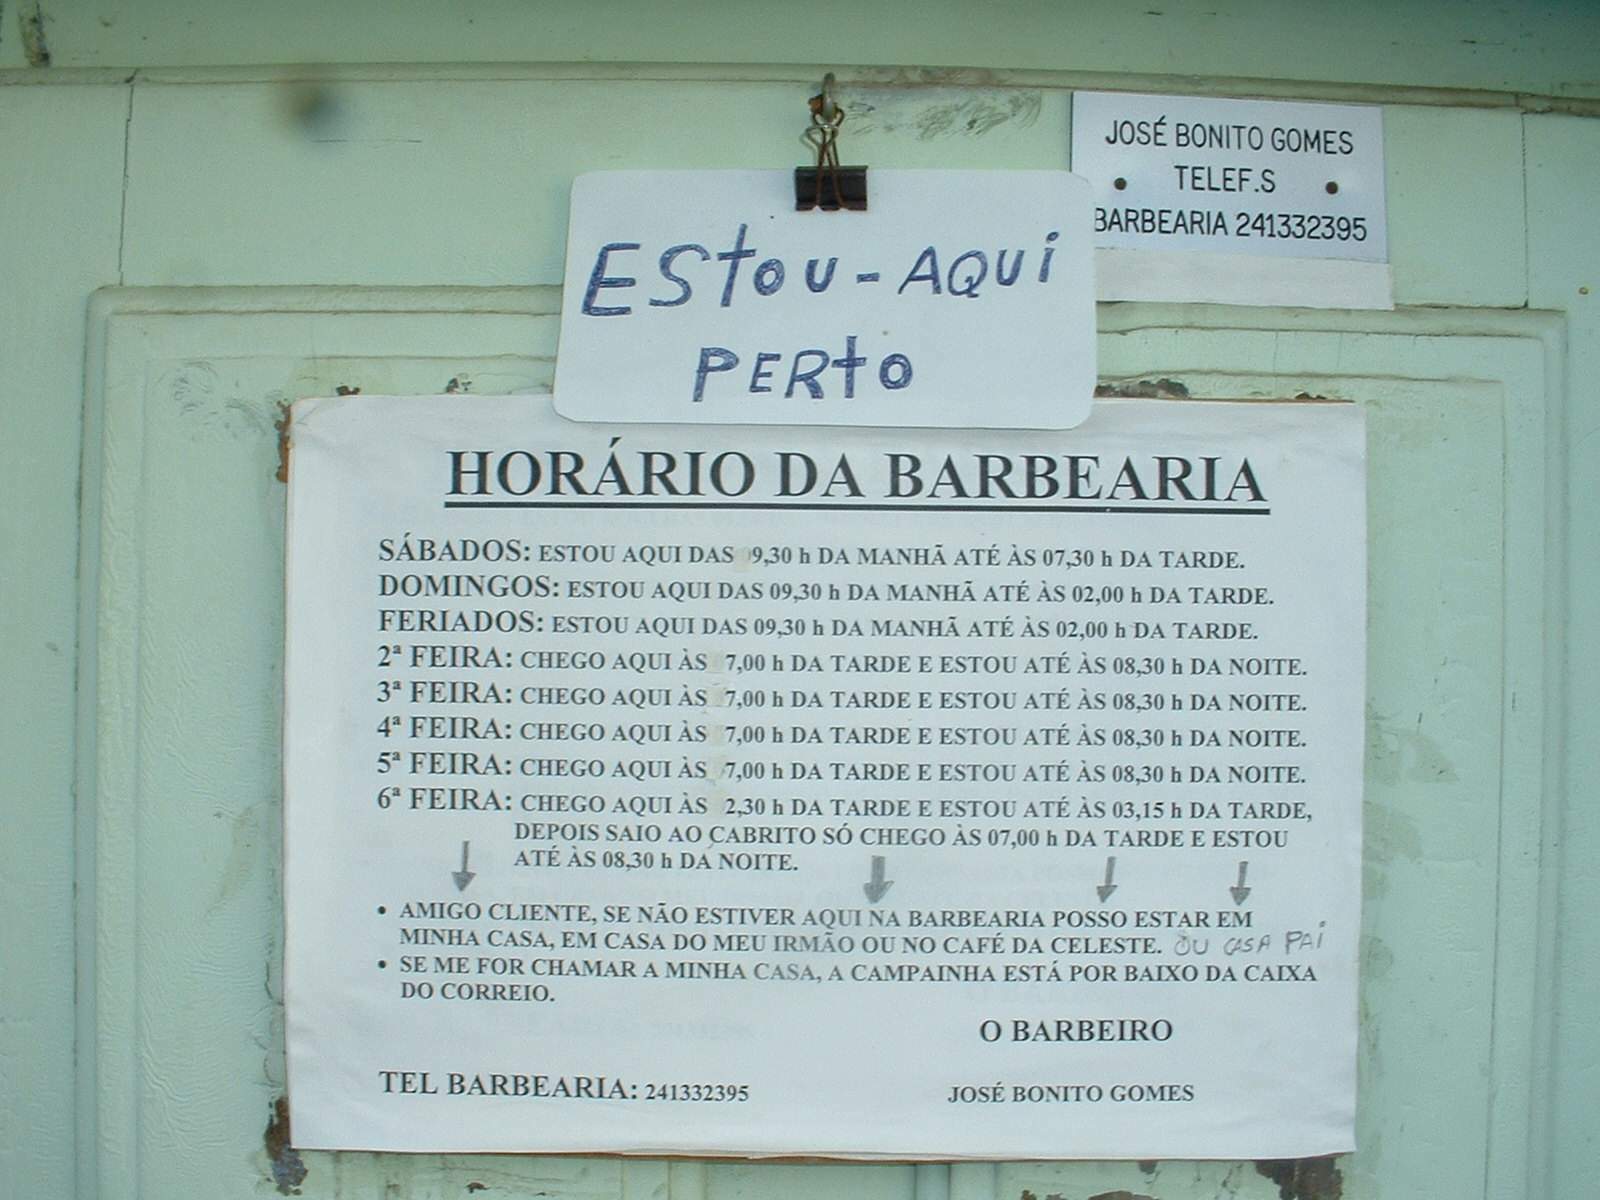 JOSÉ BONITO GOMES
TELEF.S
BARBEARIA 241332395
ESTOU-AQUI
PERTO
HORÁRIO DA BARBEARIA
SÁBADOS: ESTOU AQUI DAS 9,30 h DA MANHÃ ATÉ ÀS 07,30 h DA TARDE.
DOMINGOS: ESTOU AQUI DAS 09,30 h DA MANHÃ ATÉ ÀS 02,00 h DA TARDE.
FERIADOS: ESTOU AQUI DAS 09,30 h DA MANHÃ ATÉ ÀS 02,00 h DA TARDE.
2ª FEIRA: CHEGO AQUI ÀS 7,00 h DA TARDE E ESTOU ATÉ ÀS 08,30 h DA NOITE.
3ª FEIRA: CHEGO AQUI ÀS 7,00 h DA TARDE E ESTOU ATÉ ÀS 08,30 h DA NOITE.
4ª FEIRA: CHEGO AQUI ÀS 7,00 h DA TARDE E ESTOU ATÉ ÀS 08,30 h DA NOITE.
5ª FEIRA: CHEGO AQUI ÀS 7,00 h DA TARDE E ESTOU ATÉ ÀS 08,30 h DA NOITE.
6ª FEIRA: CHEGO AQUI ÀS 2,30 h DA TARDE E ESTOU ATÉ ÀS 03,15 h DA TARDE,
DEPOIS SAIO AO CABRITO SÓ CHEGO ÀS 07,00 h DA TARDE E ESTOU
ATÉ ÀS 08,30 h DA NOITE.
• AMIGO CLIENTE, SE NÃO ESTIVER AQUI NA BARBEARIA POSSO ESTAR EM
MINHA CASA, EM CASA DO MEU IRMÃO OU NO CAFÉ DA CELESTE. OU CASA PAI
• SE ME FOR CHAMAR A MINHA CASA, A CAMPAINHA ESTÁ POR BAIXO DA CAIXA
DO CORREIO.
O BARBEIRO
TEL BARBEARIA: 241332395
JOSÉ BONITO GOMES